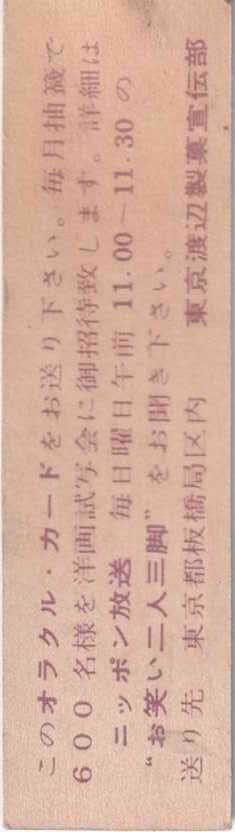 このオラクル・カードをお送り下さい。毎月抽籤で
600名様を洋画試写会に御招待致します。詳細は
ニッポン放送　毎日曜日午前 11.00－11.30 の
“お笑い二人三脚”をお聞き下さい。
送り先　東京都板橋局区内　東京渡辺製菓宣伝部